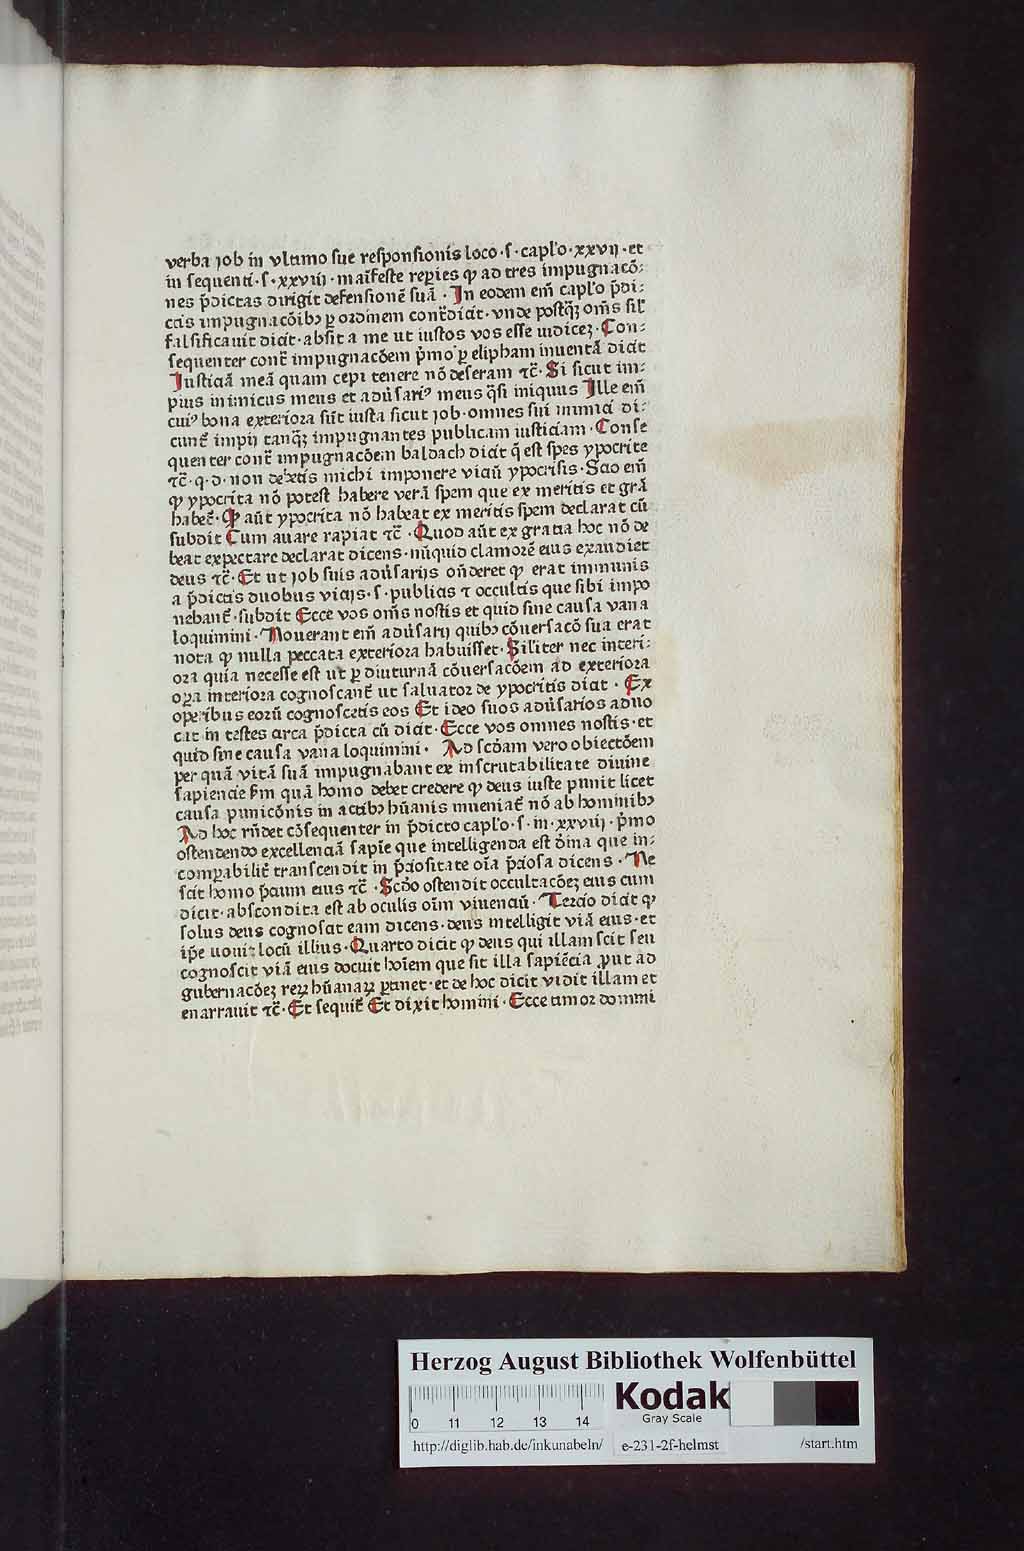 verba job in vltimo sue responsionis loco · s · capl'o · xxvij · et
in sequenti · s · xxviij · maīfeste repies ꝙ ad tres impugnacō⸗
nes p̄dictas dirigit defensionē suā · In eodem em̄ capl'o p̄di⸗
ctis impugnacōibꝰ ꝑ ordinem cont̄dicit · vnde postqꝫ om̄s sil'
falsificauit dicit · absit a me ut iustos vos esse iudicez · Con⸗
sequenter cont̄ impugnacōem p̄mo ꝑ elipham inuentā dicit
Justiciā meā quam cepi tenere nō deseram ⁊c̄ · Si sicut im⸗
pius inimicus meus et adūsariꝰ meus q̄si iniquus Ille em̄
cuiꝰ bona exteriora sūt iusta sicut job · omnes sui inimici di⸗
cunt̄ impij tanqꝫ impugnantes publicam iusticiam · Conse
quenter cont̄ impugnacōem baldach dicit q̄ est spes ypocrite
⁊c̄ · q · d · non debetis michi imponere viciū ypocrisis · Scio em̄
ꝙ ypocrita nō potest habere verā spem que ex meritis et grā
habet̄ · Ꝙ aūt ypocrita nō habeat ex meritis spem declarat cū
subdit Cum auare rapiat ⁊c̄ · Quod aūt ex gratia hoc nō de
beat expectare declarat dicens · nūquid clamorē eius exaudiet
deus ⁊c̄ · Et ut job suis adūsarijs on̄deret ꝙ erat immunis
a p̄dictis duobus vicijs · s · publicis ⁊ occultis que sibi impo
nebant̄ · subdit Ecce vos om̄s nostis et quid sine causa vana
loquimini · Nouerant em̄ adūsarij quibꝰ cōuersacō sua erat
nota ꝙ nulla peccata exteriora habuisset · Sil'iter nec interi⸗
ora quia necesse est ut ꝑ diuturnā cōuersacōem ad exteriora
oꝑa interiora cognoscant̄ ut saluator de ypocritis dicit · Ex
operibus eorū cognoscetis eos Et ideo suos adūsarios aduo
cat in testes circa p̄dicta cū dicit · Ecce vos omnes nostis · et
quid sine causa vana loquimini · Ad scd̄am vero obiectōem
per quā vitā suā impugnabant ex inscrutabilitate diuine
sapiencie sm̄ quā homo debet credere ꝙ deus iuste punit licet
causa punicōnis in actibꝰ hūanis inueniat̄ nō ab hominibꝰ
Ad hoc rn̄det cōsequenter in p̄dicto capl'o · s · in · xxviij · p̄mo
ostendendo excellenciā sapīe que intelligenda est d̄ina que in⸗
comꝑabilit̄ transcendit in p̄ciositate oīa p̄ciosa dicens · Ne
scit homo p̄cium eius ⁊c̄ · Scd̄o ostendit occultacōez eius cum
dicit · abscondita est ab oculis oīm viuenciū · Tercio dicit ꝙ
solus deus cognoscat eam dicens · deus intelligit viā eius · et
ip̄e nouit locū illius · Quarto dicit ꝙ deus qui illam scit seu
cognoscit viā eius docuit hoīem que sit illa sapiēcia ꝓut ad
gubernacōez reꝝ hūanaꝝ ꝑtinet · et de hoc dicit vidit illam et
enarrauit ⁊c̄ · Et sequit̄ Et dixit homini · Ecce timor domini
Herzog August Bibliothek Wolfenbüttel
0 11 12 13 14
Kodak
Gray Scale
http://diglib.hab.de/inkunabeln/ e-231-2f-helmst /start.htm